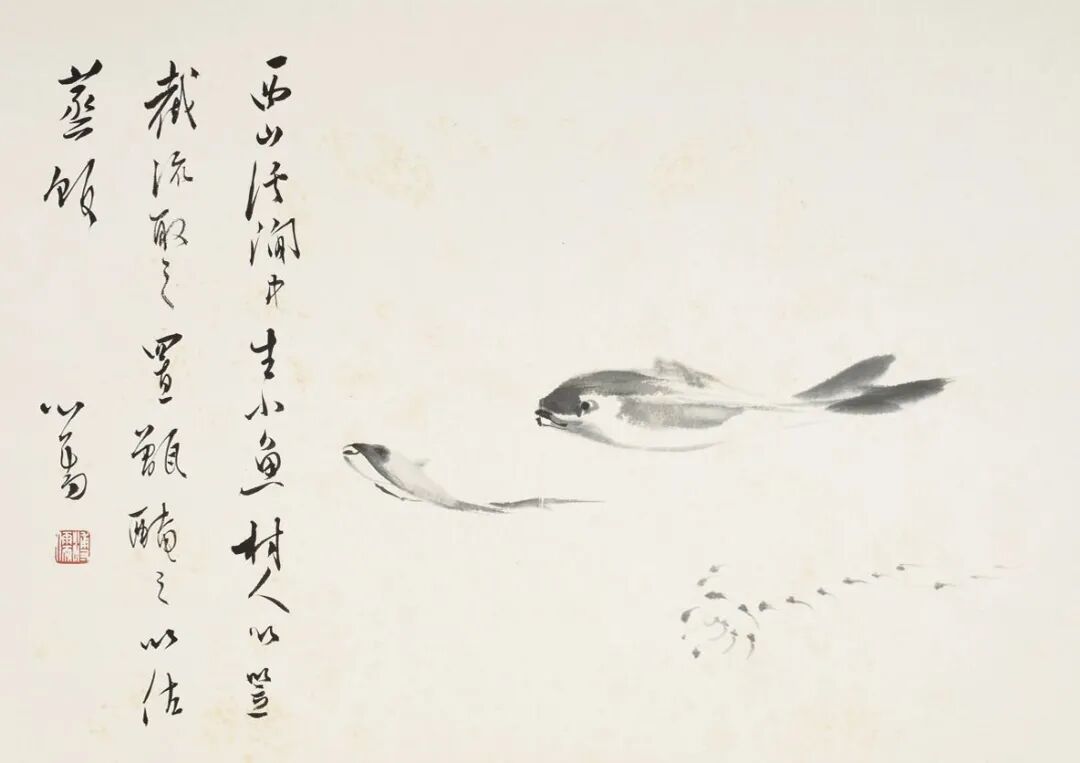 西山溪澗中生小魚村人以笠
截流取之置甑醃之以佐
蒸飯
心畬
溥儒